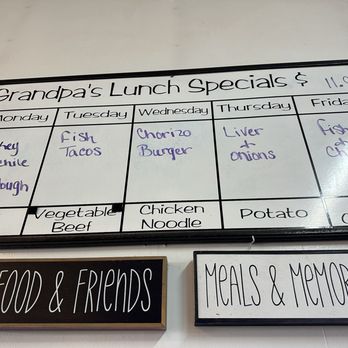 Grandpa's Lunch Specials $ 11.
Monday Tuesday Wednesday Thursday Friday
Fish
Tacos
Chorizo
Burger
Liver
+
onions
Fish
+
Vegetable
Beef
Chicken
Noodle
Potato
FOOD & FRIENDS
MEALS & MEMOR